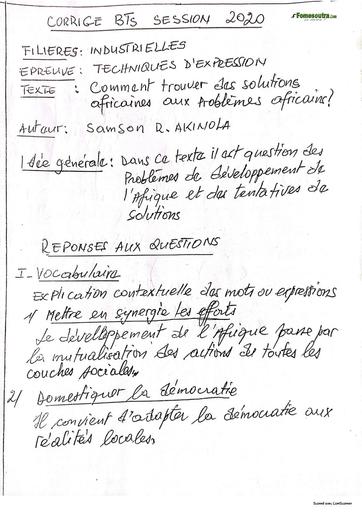 CORRIGE BTS SESSION 2020
Fomesoutra.com
FILIERES: INDUSTRIELLES
EPREUVE: TECHNIQUES D'EXPRESSION
TEXTE : Comment trouver des solutions
africaines aux problèmes africains?
Auteur: Samson R. AKINOLA
Idée générale: Dans ce texte il est question des
Problèmes de développement de
l'Afrique et des tentatives de
solutions
REPONSES AUX QUESTIONS
I- Vocabulaire
Explication contextuelle des mots ou expressions
1/ Mettre en synergie les efforts
Le développement de l'Afrique passe par
la mutualisation des actions de toutes les
couches sociales.
2/ Domestiquer la démocratie
Il convient d'adapter la démocratie aux
réalités locales.
Scanned with CamScanner